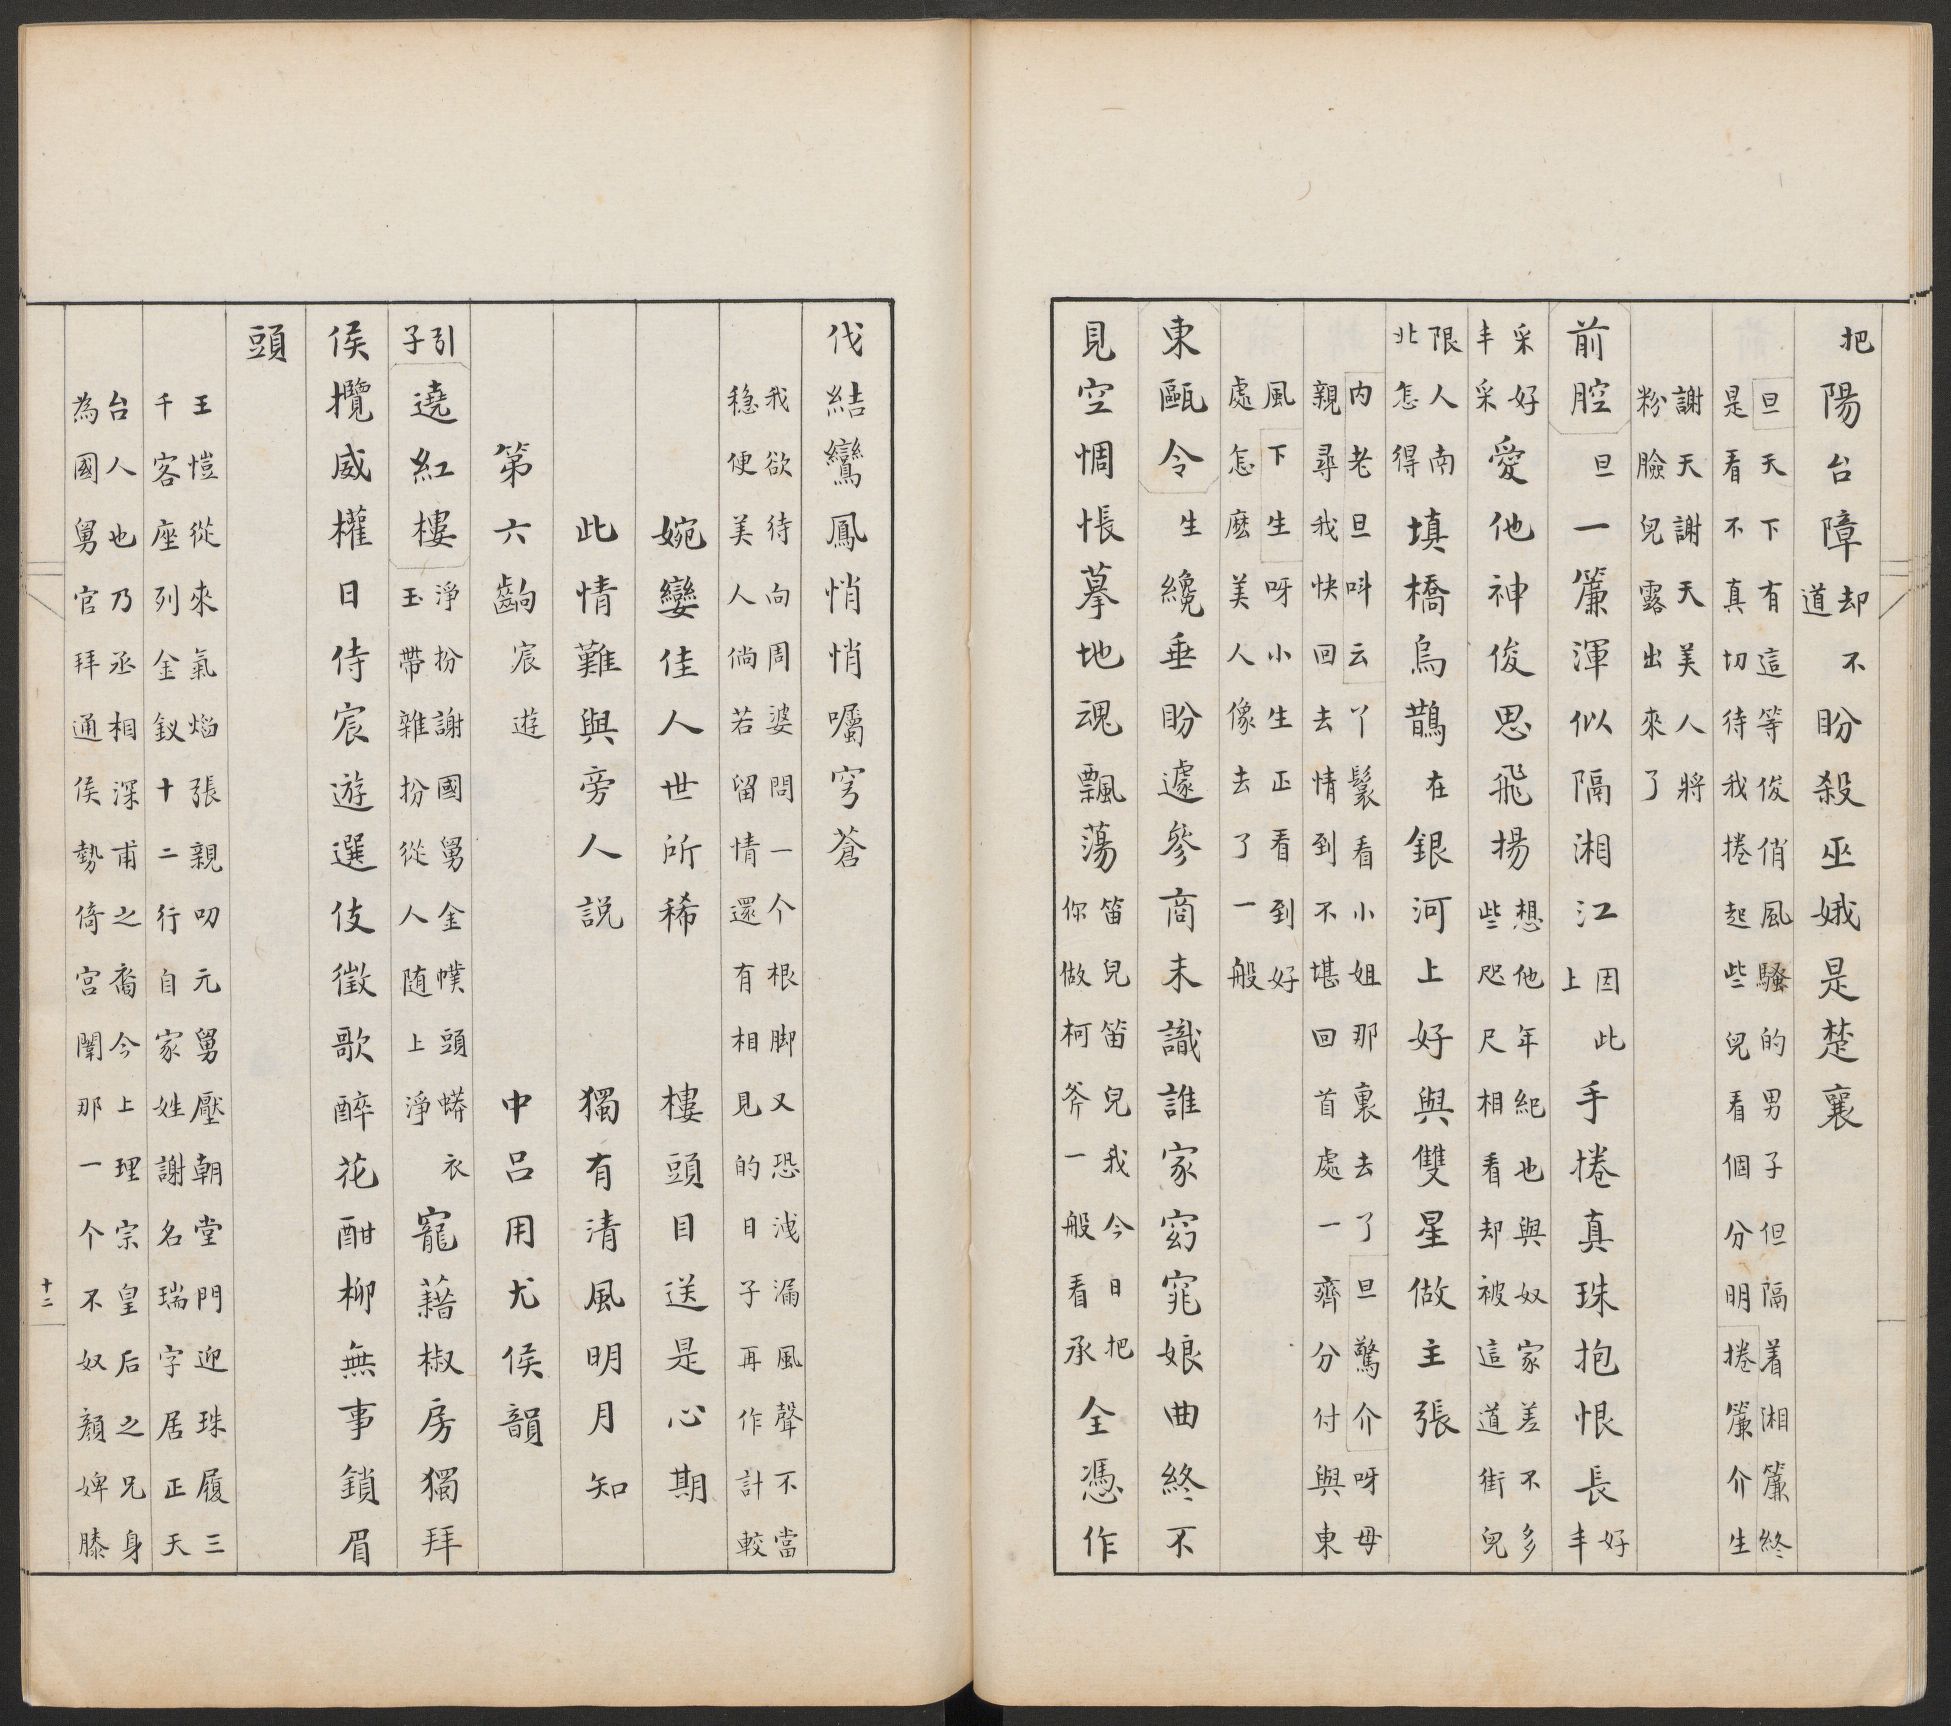 把陽台障却不道盼殺巫娥是楚襄
旦天下有這等俊俏風騷的男子但隔着湘簾終
是看不真切待我捲起些兒看個分明捲簾介生
謝天謝天美人將
粉臉兒露出來了
前腔旦一簾渾似隔湘江因此上手捲真珠抱恨長好丰
采好丰采愛他神俊思飛揚想他年紀也與奴家差不多
些咫尺相看却被這道街兒
限人南北怎得填橋烏鵲在銀河上好與雙星做主張
内老旦呌云丫鬟看小姐那裏去了旦驚介呀母
親尋我快回去情到不堪回首處一齊分付與東
風下生呀小生正看到好
處怎麽美人像去了一般
東甌令生纔垂盼遽參商未識誰家窈窕娘曲終不
見空惆悵摹地魂飄蕩笛兒笛兒我今日把你做柯斧一般看承全憑作
伐結鸞鳳悄悄囑穹蒼
我欲待向周婆問一个根脚又恐洩漏風聲不當
穩便美人倘若留情還有相見的日子再作計較
婉孌佳人世所稀 樓頭目送是心期
此情難與旁人説 獨有清風明月知
第六齣宸遊 中呂用尤侯韻
引子遶紅樓淨扮謝國舅金幞頭蟒衣玉帶雜扮從人随上淨寵藉椒房獨拜
侯攬威權日侍宸遊選伎徵歌醉花酣柳無事鎖眉
頭
王愷從來氣焰張親叨元舅壓朝堂門迎珠履三
千客座列金釵十二行自家姓謝名瑞字居正天
台人也乃丞相深甫之裔今上理宗皇后之兄身
為國舅官拜通侯勢倚宮闈那一个不奴顏婢膝
十二